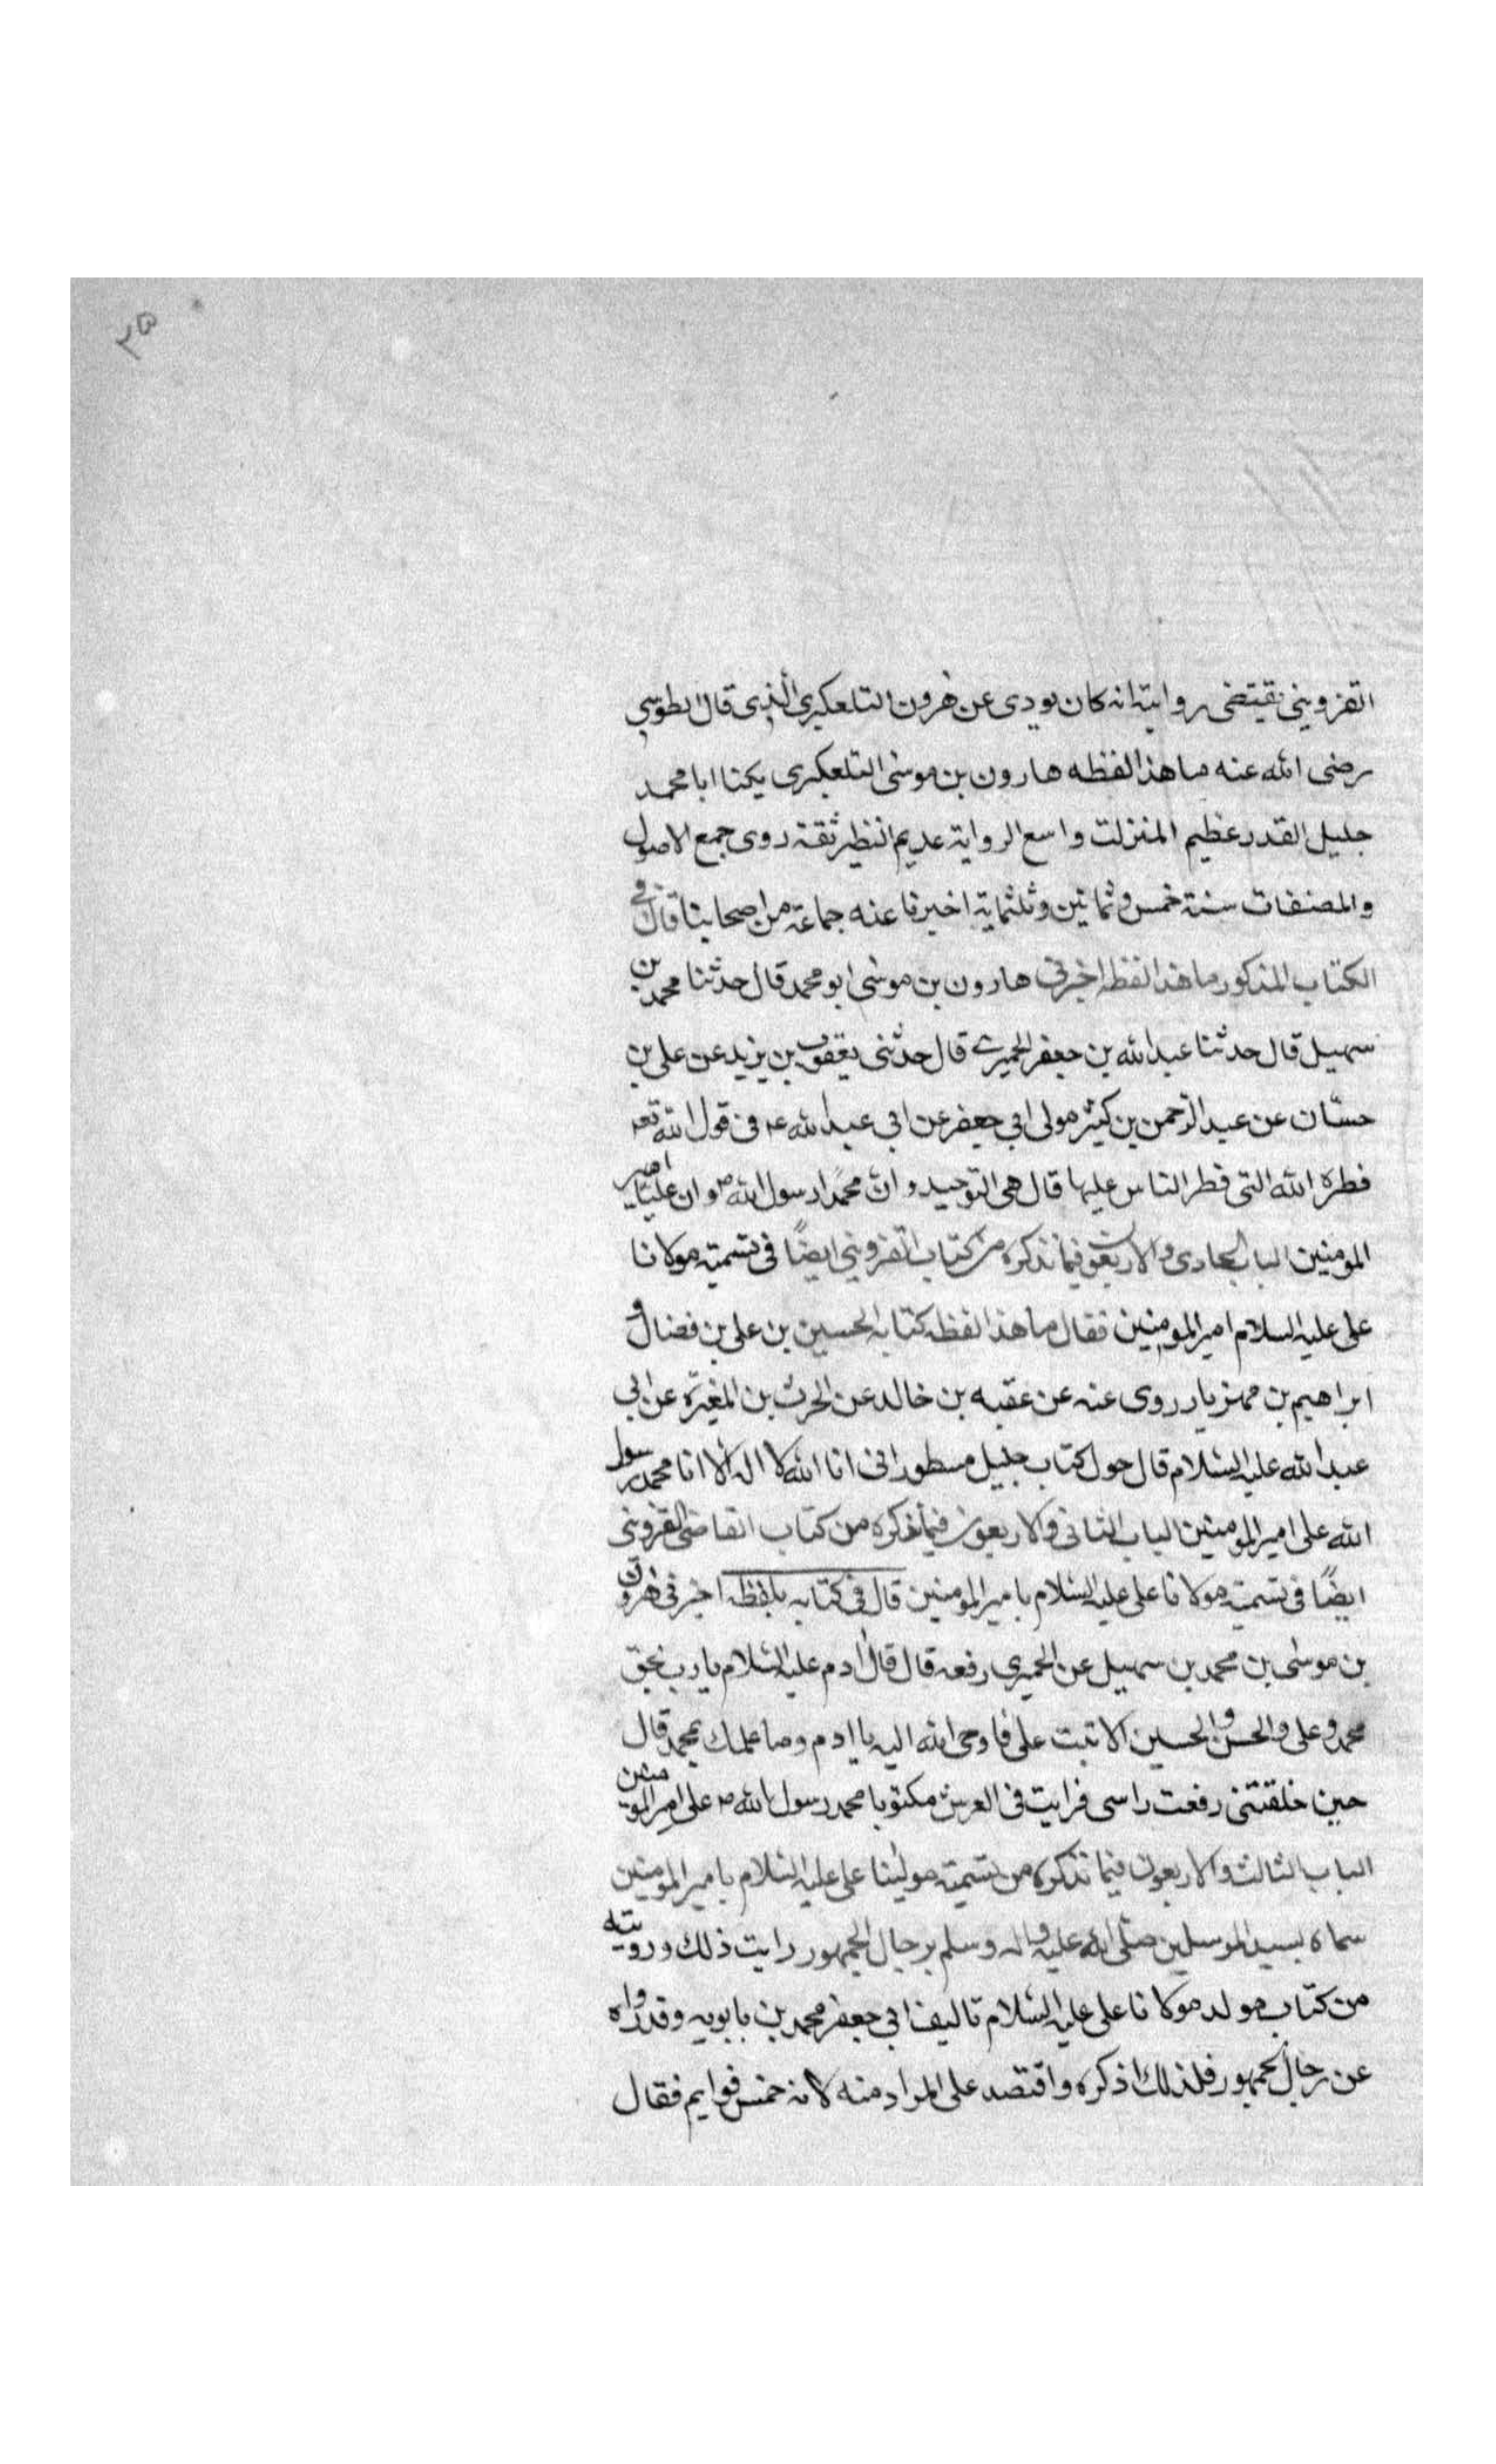 ۲۵
القزوينى يقتضى روايته انه كان يودى عن هرون التلعكبرى الذى قال الطوسى
رضى الله عنه ما هذا لفظه هارون بن موسى التلعبكرى يكنا ابا محمد
جليل القدر عظيم المنزلت واسع الرواية عديم النظير ثقة روى جمع الاصول
والمصنفات سنة خمس وثمانين وثلثماية اخبرنا عنه جماعة من اصحابنا قال فى
الكتاب المذكور ما هذا لفظه اخبرنى هارون بن موسى ابو محمد قال حدثنا محمد بن
سهيل قال حدثنا عبد الله بن جعفر الحميرى قال حدثنى يعقوب بن يزيد عن على بن
حسّان عن عبد الرّحمن بن كثير مولى ابى جعفر عن ابى عبد الله ع فى قول الله تع
فطرة الله التى فطر الناس عليها قال هى التوحيد و انّ محمّدا رسول الله ص و ان عليّا امير
المومنين الباب الحادى والاربعون فيما نذكره من كتاب القزوينى ايضًا فى تسمية مولانا
على عليه السلام امير المومنين فقال ما هذا لفظه كتابه الحسين بن على بن فضال و
ابراهيم بن مهزيار روى عنه عن عقبه بن خالد عن الحرث بن المغيرة عن ابى
عبد الله عليه السّلام قال حول كتاب جليل مسطور انى انا الله لا اله الا انا محمد رسول
الله على امير المومنين الباب الثانى والاربعون فيما نذكره من كتاب القاضى القزوينى
ايضًا فى تسمية مولانا على عليه السّلام بامير المومنين قال فى كتابه بلفظه اخبرنى هرون
بن موسى بن محمد بن سهيل عن الحميرى رفعه قال قال ادم عليه السّلام يا رب بحق
محمد وعلى والحسن والحسين الا تبت على فاوحى الله اليه يا ادم وما علمك بمحمد قال
حين خلقتنى رفعت راسى فرايت فى العرش مكتوبا محمد رسول الله ص على امير المومنين
الباب الثالث والاربعون فيما نذكره من تسمية مولينا على عليه السّلام بامير المومنين
سماه بسيد المرسلين صلّى الله عليه واله وسلم برجال الجمهور رايت ذلك ورويته
من كتاب مولد مولانا على عليه السّلام تاليف ابى جعفر محمد بن بابويه وقد رواه
عن رجال الجمهور فلذلك اذكره واقتصد على المراد منه لانه خمس قوايم فقال